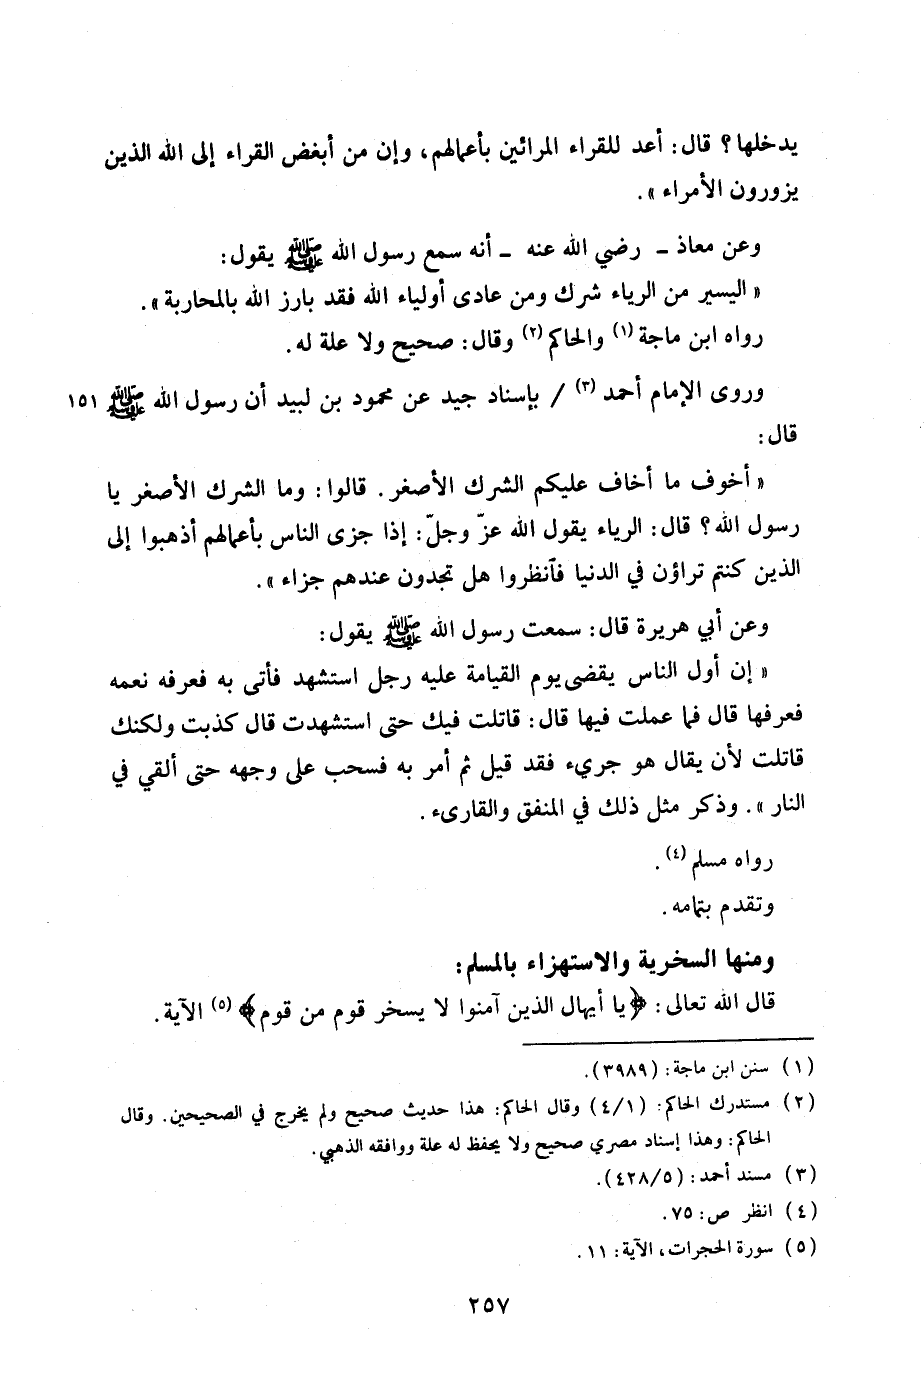 يدخلها؟ قال: أعد للقراء المرائين بأعمالهم، وإن من أبغض القراء إلى الله الذين
يزورون الأمراء».
وعن معاذ ـ رضي الله عنه ـ أنه سمع رسول الله ﷺ يقول:
«اليسير من الرياء شرك ومن عادى أولياء الله فقد بارز الله بالمحاربة».
رواه ابن ماجة (١) والحاكم (٢) وقال: صحيح ولا علة له.
وروى الإمام أحمد (٣) / بإسناد جيد عن محمود بن لبيد أن رسول الله ﷺ ١٥١
قال:
«أخوف ما أخاف عليكم الشرك الأصغر. قالوا: وما الشرك الأصغر يا
رسول الله؟ قال: الرياء يقول الله عزّ وجلّ: إذا جزى الناس بأعمالهم أذهبوا إلى
الذين كنتم تراؤن في الدنيا فآنظروا هل تجدون عندهم جزاء».
وعن أبي هريرة قال: سمعت رسول الله ﷺ يقول:
«إن أول الناس يقضى يوم القيامة عليه رجل استشهد فأتى به فعرفه نعمه
فعرفها قال فما عملت فيها قال: قاتلت فيك حتى استشهدت قال كذبت ولكنك
قاتلت لأن يقال هو جريء فقد قيل ثم أمر به فسحب على وجهه حتى ألقي في
النار». وذكر مثل ذلك في المنفق والقارىء.
رواه مسلم (٤).
وتقدم بتمامه.
ومنها السخرية والاستهزاء بالمسلم:
قال الله تعالى: ﴿يا أيهال الذين آمنوا لا يسخر قوم من قوم﴾ (٥) الآية.
(١) سنن ابن ماجة: (٣٩٨٩).
(٢) مستدرك الحاكم: (٤/١) وقال الحاكم: هذا حديث صحيح ولم يخرج في الصحيحين. وقال
الحاكم: وهذا إسناد مصري صحيح ولا يحفظ له علة ووافقه الذهبي.
(٣) مسند أحمد: (٤٢٨/٥).
(٤) انظر ص: ٧٥.
(٥) سورة الحجرات، الآية: ١١.
٢٥٧